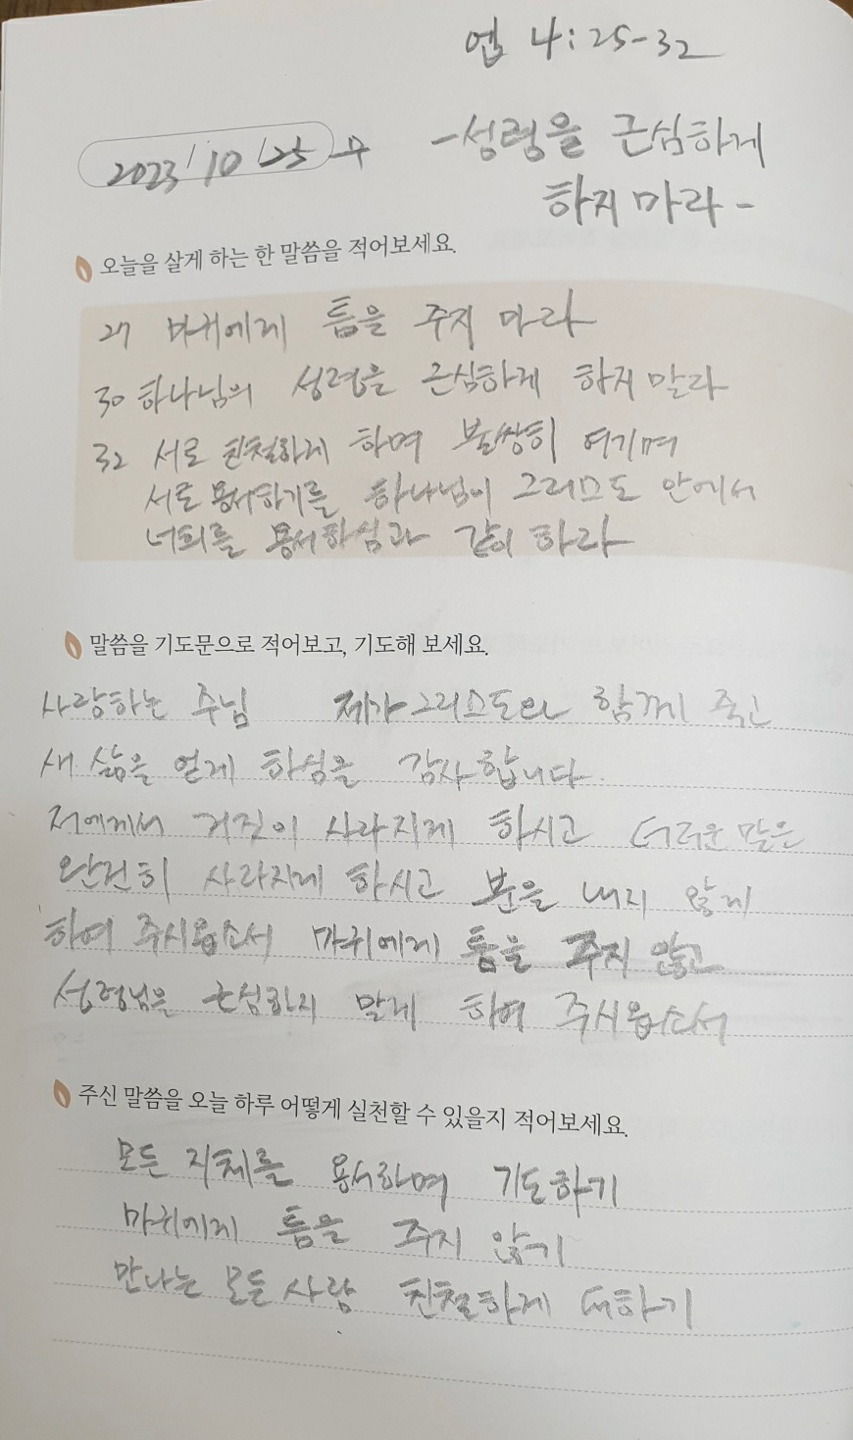 엡 4:25-32
2023/10/25 수
-성령을 근심하게
하지 마라-
오늘을 살게 하는 한 말씀을 적어보세요.
27 마귀에게 틈을 주지 마라
30 하나님의 성령을 근심하게 하지 말라
32 서로 친절하게 하며 불쌍히 여기며
서로 용서하기를 하나님이 그리스도 안에서
너희를 용서하심과 같이 하라
말씀을 기도문으로 적어보고, 기도해 보세요.
사랑하는 주님 제가 그리스도와 함께 죽고
새 삶을 얻게 하심을 감사합니다.
저에게서 거짓이 사라지게 하시고 더러운 말은
완전히 사라지게 하시고 분을 내지 않게
하여 주시옵소서 마귀에게 틈을 주지 않고
성령님을 근심하지 말게 하여 주시옵소서
주신 말씀을 오늘 하루 어떻게 실천할 수 있을지 적어보세요.
모든 지체를 용서하며 기도하기
마귀에게 틈을 주지 않기
만나는 모든 사람 친절하게 대하기